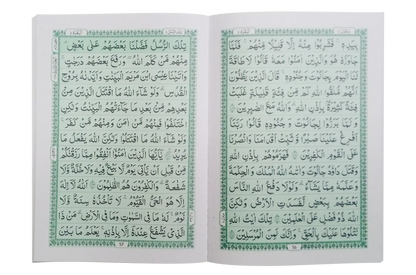 بِيَدِهٖ ۚ فَشَرِبُوْا مِنْهُ اِلَّا قَلِيْلًا مِّنْهُمْ ؕ فَلَمَّا
جَاوَزَهٗ هُوَ وَالَّذِيْنَ اٰمَنُوْا مَعَهٗ ۙ قَالُوْا لَا طَاقَةَ
لَنَا الْيَوْمَ بِجَالُوْتَ وَجُنُوْدِهٖ ؕ قَالَ الَّذِيْنَ يَظُنُّوْنَ
اَنَّهُمْ مُّلٰقُوا اللّٰهِ ۙ كَمْ مِّنْ فِئَةٍ قَلِيْلَةٍ غَلَبَتْ
فِئَةً كَثِيْرَةً بِاِذْنِ اللّٰهِ ؕ وَاللّٰهُ مَعَ الصّٰبِرِيْنَ
وَلَمَّا بَرَزُوْا لِجَالُوْتَ وَجُنُوْدِهٖ قَالُوْا رَبَّنَا
اَفْرِغْ عَلَيْنَا صَبْرًا وَّثَبِّتْ اَقْدَامَنَا وَانْصُرْنَا
عَلَى الْقَوْمِ الْكٰفِرِيْنَ فَهَزَمُوْهُمْ بِاِذْنِ اللّٰهِ
وَقَتَلَ دَاوٗدُ جَالُوْتَ وَاٰتٰىهُ اللّٰهُ الْمُلْكَ وَالْحِكْمَةَ
وَعَلَّمَهٗ مِمَّا يَشَآءُ ؕ وَلَوْلَا دَفْعُ اللّٰهِ النَّاسَ
بَعْضَهُمْ بِبَعْضٍ لَّفَسَدَتِ الْاَرْضُ وَلٰكِنَّ
اللّٰهَ ذُوْ فَضْلٍ عَلَى الْعٰلَمِيْنَ تِلْكَ اٰيٰتُ اللّٰهِ
نَتْلُوْهَا عَلَيْكَ بِالْحَقِّ ؕ وَاِنَّكَ لَمِنَ الْمُرْسَلِيْنَ
تِلْكَ الرُّسُلُ فَضَّلْنَا بَعْضَهُمْ عَلٰى بَعْضٍ
مِنْهُمْ مَّنْ كَلَّمَ اللّٰهُ وَرَفَعَ بَعْضَهُمْ دَرَجٰتٍ
وَاٰتَيْنَا عِيْسَى ابْنَ مَرْيَمَ الْبَيِّنٰتِ وَاَيَّدْنٰهُ بِرُوْحِ
الْقُدُسِ ؕ وَلَوْ شَآءَ اللّٰهُ مَا اقْتَتَلَ الَّذِيْنَ مِنْ
بَعْدِهِمْ مِّنْ بَعْدِ مَا جَآءَتْهُمُ الْبَيِّنٰتُ وَلٰكِنِ
اخْتَلَفُوْا فَمِنْهُمْ مَّنْ اٰمَنَ وَمِنْهُمْ مَّنْ كَفَرَ
وَلَوْ شَآءَ اللّٰهُ مَا اقْتَتَلُوْا وَلٰكِنَّ اللّٰهَ يَفْعَلُ مَا
يُرِيْدُ يٰۤاَيُّهَا الَّذِيْنَ اٰمَنُوْۤا اَنْفِقُوْا مِمَّا رَزَقْنٰكُمْ
مِّنْ قَبْلِ اَنْ يَّاْتِيَ يَوْمٌ لَّا بَيْعٌ فِيْهِ وَلَا خُلَّةٌ وَّلَا
شَفَاعَةٌ ؕ وَالْكٰفِرُوْنَ هُمُ الظّٰلِمُوْنَ اَللّٰهُ لَاۤ اِلٰهَ
اِلَّا هُوَ ۚ اَلْحَيُّ الْقَيُّوْمُ ۚ لَا تَاْخُذُهٗ سِنَةٌ وَّلَا
نَوْمٌ ؕ لَهٗ مَا فِي السَّمٰوٰتِ وَمَا فِي الْاَرْضِ ؕ مَنْ ذَا
الَّذِيْ يَشْفَعُ عِنْدَهٗۤ اِلَّا بِاِذْنِهٖ ؕ يَعْلَمُ مَا بَيْنَ